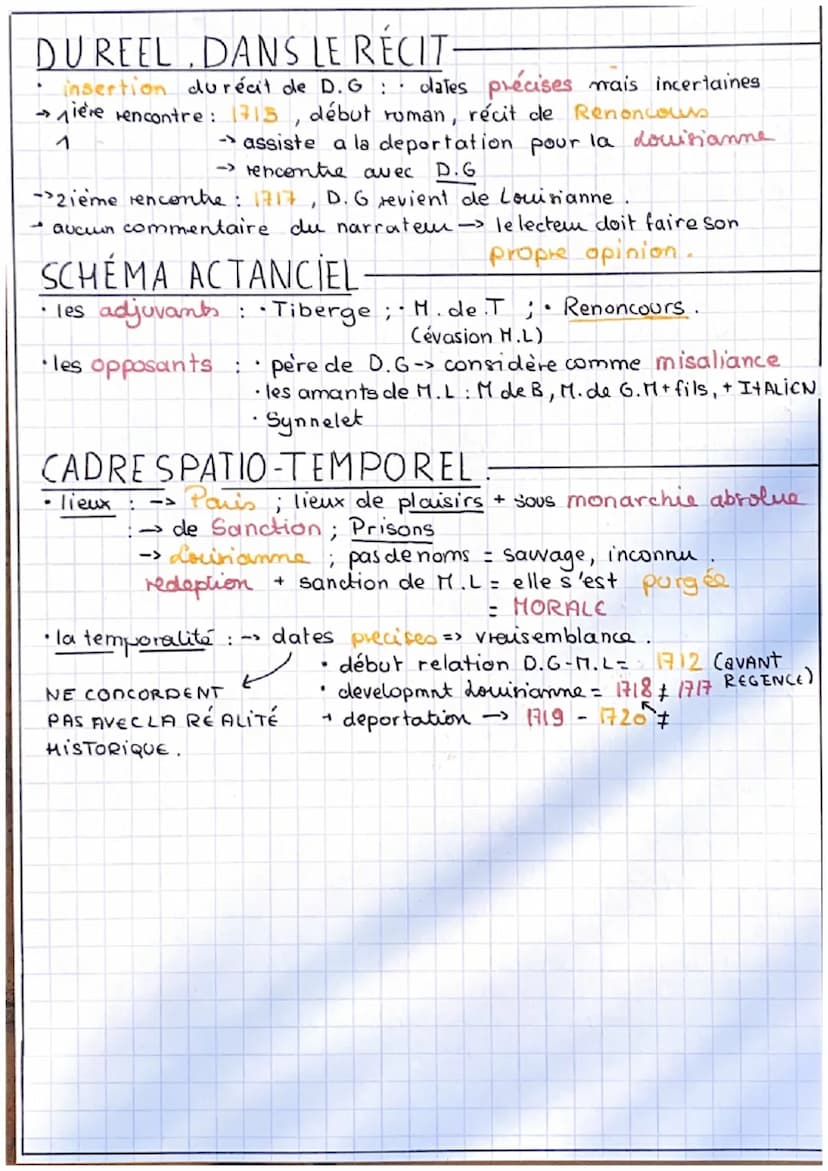 DU REEL . DANS LE RÉCIT
• insertion du récit de D.G : • dates précises mais incertaines
→ 1ière rencontre : 1715 , début roman, récit de Renoncours
1 → assiste a la deportation pour la Louisianne
→ rencontre avec D.G
→ 2ième rencontre : 1717 , D.G revient de Louisianne .
→ aucun commentaire du narrateur → le lecteur doit faire son
propre opinion .
SCHÉMA ACTANCIEL
• les adjuvants : • Tiberge ; • M. de .T ; • Renoncours .
(évasion M.L)
• les opposants : • père de D.G → considère comme misaliance
• les amants de M.L : M de B, M. de G.M + fils, + ITALICN
• Synnelet
CADRE SPATIO-TEMPOREL
• lieux : → Paris ; lieux de plaisirs + sous monarchie absolue
: → de Sanction ; Prisons
→ Louisianne ; pas de noms = sauvage, inconnu .
redeption + sanction de M.L = elle s'est purgée
= MORALE
• la temporalité : → dates précises => vraisemblance .
• début relation D.G-M.L = 1712 (AVANT
REGENCE)
NE CONCORDENT
• developmnt Louisianne = 1718 ≠ 1717
PAS AVEC LA RÉALITÉ
→ deportation → 1719 - 1720 ≠
HISTORIQUE .